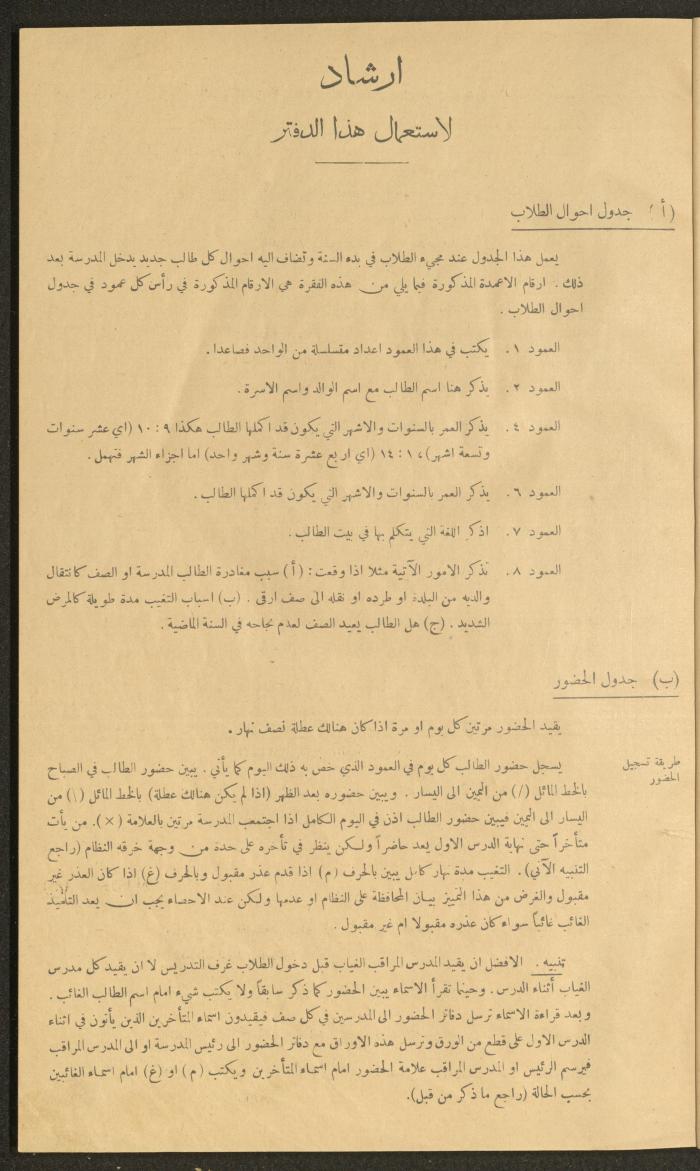 ارشاد
لاستعمال هذا الدفتر
(أ) جدول احوال الطلاب
يعمل هذا الجدول عند مجيء الطلاب في بدء السنة وتضاف اليه احوال كل طالب جديد يدخل المدرسة بعد
ذلك . ارقام الاعمدة المذكورة فيما يلي من هذه الفقرة هي الارقام المذكورة في رأس كل عمود في جدول
احوال الطلاب .
العمود ١. يكتب في هذا العمود اعداد متسلسلة من الواحد فصاعدا .
العمود ٢. يذكر هنا اسم الطالب مع اسم الوالد واسم الاسرة .
العمود ٤. يذكر العمر بالسنوات والاشهر التي يكون قد اكملها الطالب هكذا ٩ : ١٠ (اي عشر سنوات
وتسعة اشهر)، ١ : ١٤ (اي اربع عشرة سنة وشهر واحد) اما اجزاء الشهر فتهمل .
العمود ٦. يذكر العمر بالسنوات والاشهر التي يكون قد اكملها الطالب .
العمود ٧. اذكر اللغة التي يتكلم بها في بيت الطالب .
العمود ٨. تذكر الامور الآتية مثلا اذا وقعت : (أ) سبب مغادرة الطالب المدرسة او الصف كانتقال
والديه من البلدة او طرده او نقله الى صف ارقى . (ب) اسباب التغيب مدة طويلة كالمرض
الشديد . (ج) هل الطالب يعيد الصف لعدم نجاحه في السنة الماضية .
(ب) جدول الحضور
يقيد الحضور مرتين كل يوم او مرة اذا كان هنالك عطلة نصف نهار .
طريقة تسجيل
الحضور
يسجل حضور الطالب كل يوم في العمود الذي خص به ذلك اليوم كما يأتي . يبين حضور الطالب في الصباح
بالخط المائل (/) من اليمين الى اليسار . ويبين حضوره بعد الظهر (اذا لم يكن هنالك عطلة) بالخط المائل (\) من
اليسار الى اليمين فيبين حضور الطالب اذن في اليوم الكامل اذا اجتمعت المدرسة مرتين بالعلامة (×). من يأت
متأخراً حتى نهاية الدرس الاول يعد حاضراً ولكن ينظر في تأخره على حدة من وجهة خرقه النظام (راجع
التنبيه الآتي) . التغيب مدة نهار كامل يبين بالحرف (م) اذا قدم عذر مقبول وبالحرف (غ) اذا كان العذر غير
مقبول والغرض من هذا التمييز بيان المحافظة على النظام او عدمها ولكن عند الاحصاء يجب ان يعد التلميذ
الغائب غائباً سواء كان عذره مقبولا ام غير مقبول .
تنبيه . الافضل ان يقيد المدرس المراقب الغياب قبل دخول الطلاب غرف التدريس لا ان يقيد كل مدرس
الغياب أثناء الدرس . وحينما تقرأ الاسماء يبين الحضور كما ذكر سابقاً ولا يكتب شيء امام اسم الطالب الغائب .
وبعد قراءة الاسماء ترسل دفاتر الحضور الى المدرسين في كل صف فيقيدون اسماء المتأخرين الذين يأتون في اثناء
الدرس الاول على قطع من الورق وترسل هذه الاوراق مع دفاتر الحضور الى رئيس المدرسة او الى المدرس المراقب
فيرسم الرئيس او المدرس المراقب علامة الحضور امام اسماء المتأخرين ويكتب (م) او (غ) امام اسماء الغائبين
بحسب الحالة (راجع ما ذكر من قبل).